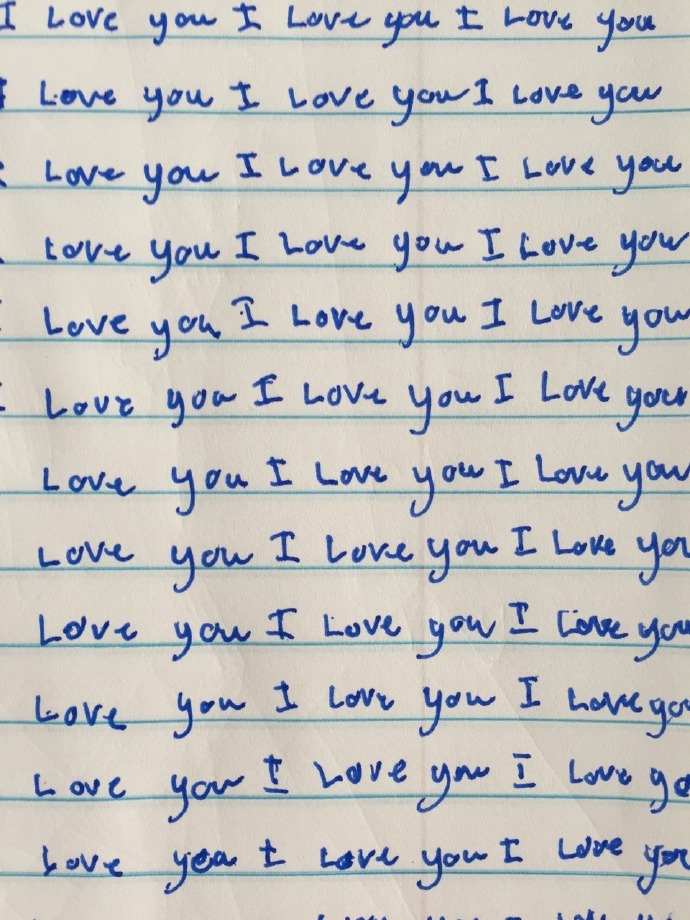 I Love you I Love you I Love you
I Love you I Love you I Love you
Love you I Love you I Love you
Love you I Love you I Love you
Love you I Love you I Love you
Love you I Love you I Love your
Love you I Love you I Love you
Love you I Love you I Love you
Love you I Love you I Love you
Love you I Love you I Love you
Love you I Love you I Love yo
Love you I Love you I Love you